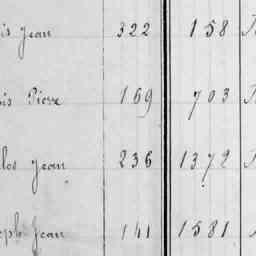 is Jean 322 158
is Pierre 169 703
les Jean 236 1372
eph Jean 141 1581